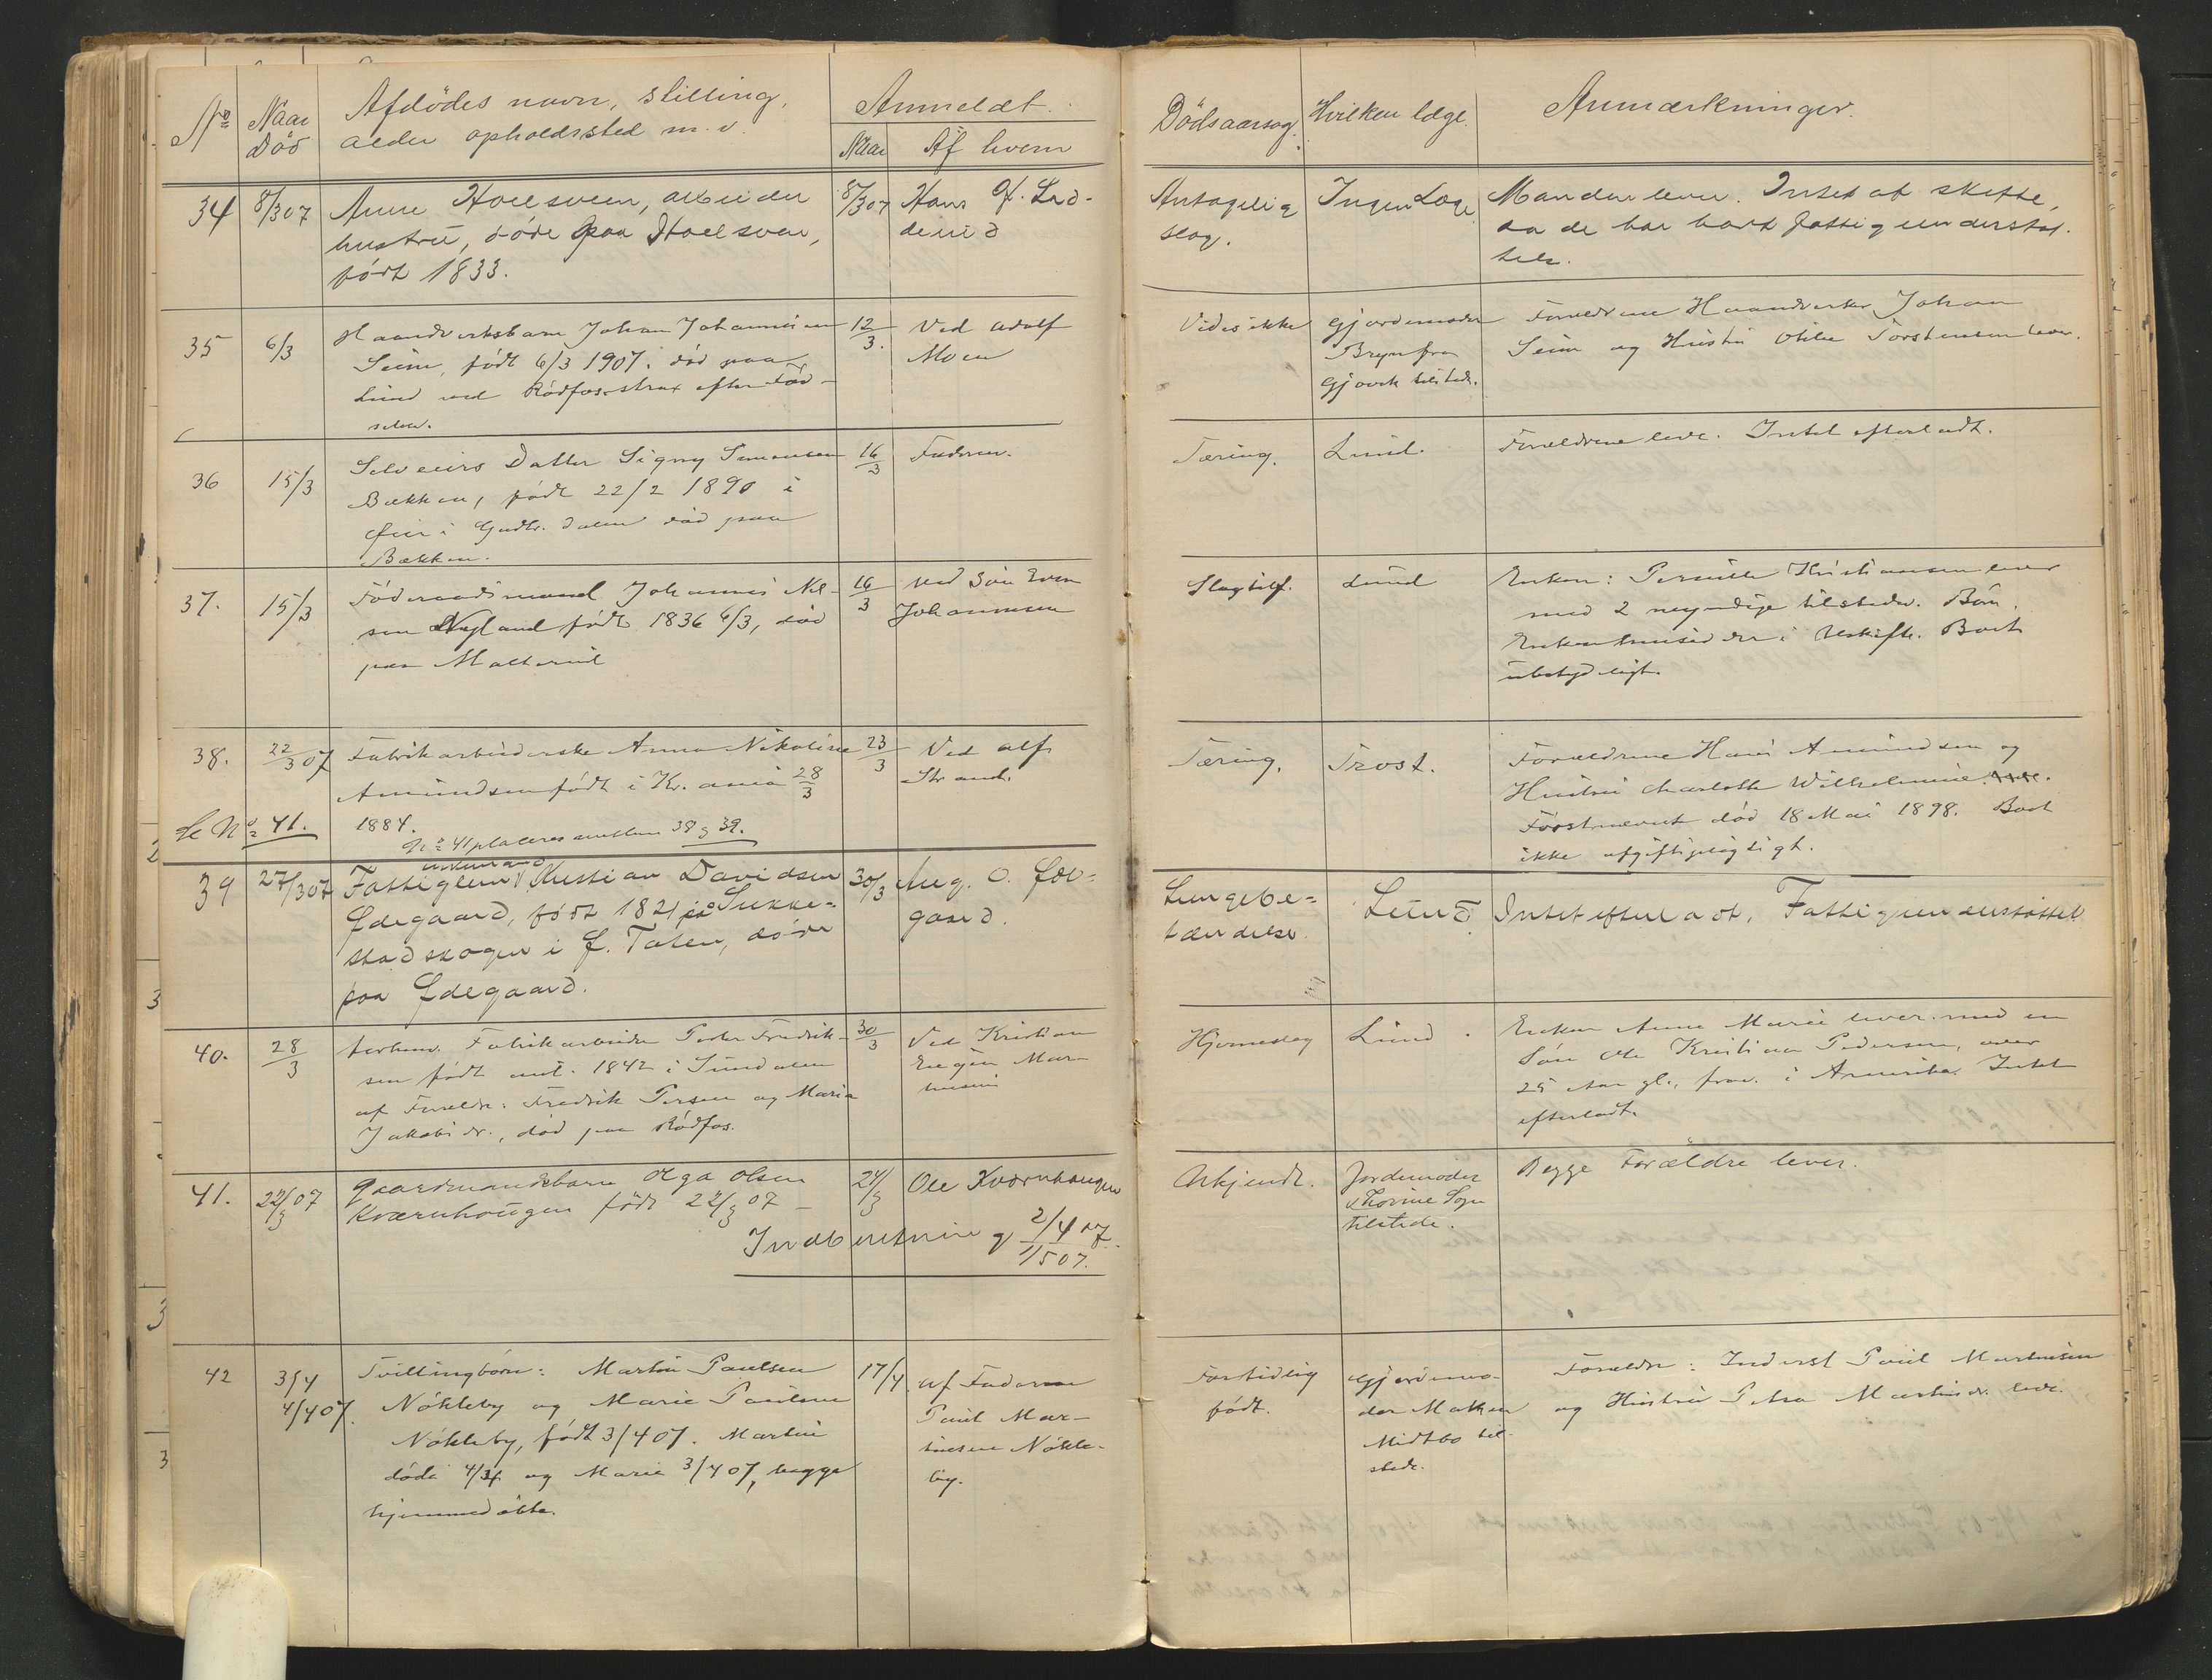 No Naar Död Afdödes navn, stilling, alder opholdssted m.v. Anmeldt. Naar Af hvem Dödsaarsag. Hvilken læge. Anmærkninger.
34 8/3 07 Anne Hoelsveen, arbeider
hustru, döde paa Hoelsveen,
född 1833.
8/3 07 Hans
Antagelig
slag.
Ingen Læge
Manden lever. Intet at skifte,
da de har havt fattigunderstøt-
telse.
35 6/3 Haandverksbarn Johan Johannesen
Seim, født 6/3 1907. död paa
Lund ved Rödfos strax efter Föd-
selen.
12/3 Ved Adolf
Moen
Vides ikke
Gjordemoder
Bryn fra
Gjøvik tilstede.
Forældrene Haandverker Johan
Seim og Hustru Otilie Torstensen lever.
36 15/3 Selveiers Datter Signy Simensen
Bækken, född 22/2 1890 i
Øier i Gudbr.dalen död paa
Bækken.
16/3 Faderen.
Tæring.
Lund.
Forældrene leve. Intet efterladt.
37. 15/3 Föderaadsmand Johannes Nil-
sen Nyland född 1836 6/3, död
paa
16/3 Ved Sön Even
Johannesen
Slagtilf.
Lund
Enken: Pernille Kristiansen lever
med 2 myndige tilstede. Börn.
Enken hensidder i Uskifte. Boet
ubetydeligt.
38. 22/3 07 Fabrikarbeiderske Anna Nikoline
Amundsen född i Kr.ania 28/3
1884.
23/3 Ved Alf
Strand.
Tæring.
Trost.
Forældrene Hans Amundsen og
Hustru Charlotte Wilhelmine.
Förstnævnt död 18 Mai 1898. Boet
ikke afgiftspligtigt.
Se No 41.
No 41 placeres mellem 38 & 39.
39 27/3 07 Fattiglem Kristian Davidsen
Ødegaard, född 1821 paa Sukke-
stadskogen i Ø. Toten, döde
paa Ødegaard.
30/3 Aug. O. Øde-
gaard.
Lungebe-
tændelse.
Lund.
Intet efterladt. Fattigunderstøttet.
40. 28/3 Forhenv. Fabrikarbeider Peder Fredrik-
sen född ant. 1842 i Sundalen
af Foreldr. Fredrik Persen og Maria
Jakobsdr., död paa Rödfos.
30/3 Ved Kristian
Eugen Mar-
Hjerneslag
Lund.
Enken Anne Marie lever. med en
Sön Ole Kristian Pedersen, over
25 Aar gl., frav. i Amerika. Intet
efterladt.
41. 22/3 07 Gaardmandsbarn Olga Olsen
Kværnhaugen födt 22/3 07
24/3 Ole Kværnhaugen
Ukjendt.
Jordemoder
Thorine Sogn
tilstede.
Begge Forældre lever.
Indberetning 2/4 07.
1/5 07.
42 3/4
4/4 07.
Tvillingbörn: Martin Paulsen
Nökleby og Marie Paulsen
Nökleby, född 3/4 07. Martin
döde 4/4 og Marie 3/4 07, begge
hjemmedöbte.
17/4. Af Faderen
Paul Mar-
tinsen Nökle-
by.
Fortidlig
född.
Gjordemo-
der
Midtbo til-
stede.
Forældre: Inderst Paul Martinsen
og Hustru Petra Martinsdr. leve.